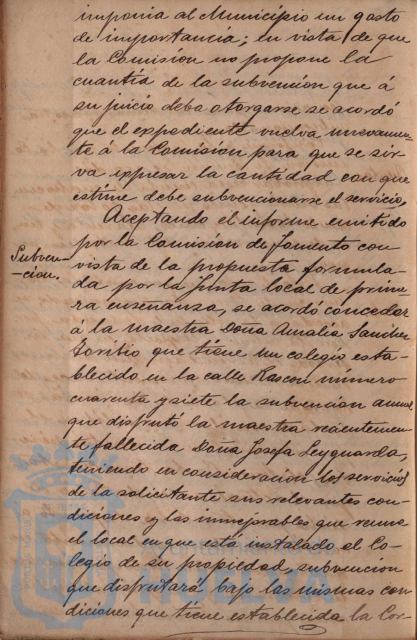 imponia al Municipio un gasto
de importancia; en vista de que
la Comisión no propone la
cuantía de la subvención que á
su juicio deba otorgarse se acordó
que el expediente vuelva nuevamen-
te á la Comisión para que se sir-
va expresar la cantidad con que
estime debe subvencionarse el servicio.
Aceptando el informe emitido
por la Comisión de Fomento con
Subven-
-cion.
vista de la propuesta formula-
da por la Junta local de prime-
ra enseñanza, se acordó conceder
á la maestra Doña Amalia Sanchez
Toribio que tiene un colegio esta-
blecido en la calle Rascon número
cuarenta y siete la subvencion anual
que disfrutó la maestra recientemen-
te fallecida Doña Josefa
teniendo en consideracion los servicios
de la solicitante sus relevantes con-
diciones y las inmejorables que reune
el local en que está instalado el Co-
legio de su propiedad, subvencion
que disfrutará bajo las mismas con-
diciones que tiene establecida la Cor-